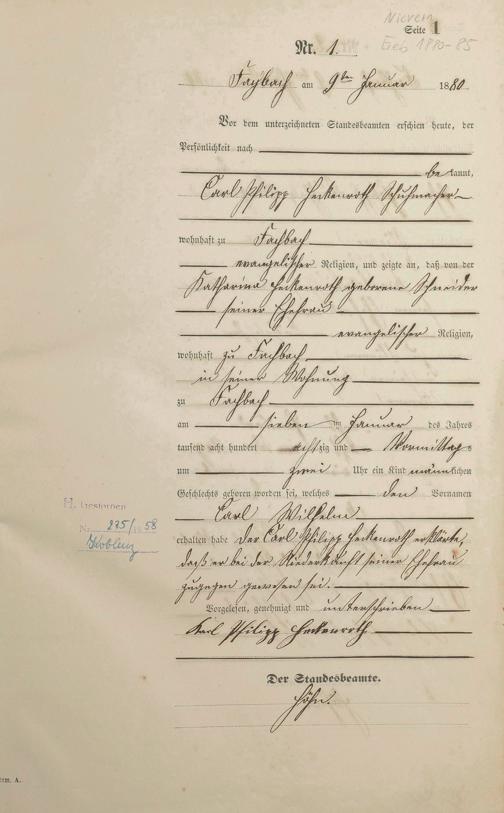 Nievern
Geb 1880-85
Seite 1
Nr. 1.
Fachbach am 9ten Januar 1880
Vor dem unterzeichneten Standesbeamten erschien heute, der
Persönlichkeit nach
bekannt,
Carl Philipp Heckenroth Schuhmacher
wohnhaft zu Fachbach
evangelischer Religion, und zeigte an, daß von der
Katharina Heckenroth geborene Schneider
seiner Ehefrau
evangelischer Religion,
wohnhaft zu Fachbach
in seiner Wohnung
zu Fachbach
am sieben ten Januar des Jahres
tausend acht hundert achtzig und Vormittags
um zwei Uhr ein Kind männlichen
Geschlechts geboren worden sei, welches den Vornamen
Carl Wilhelm
erhalten habe Der Carl Philipp Heckenroth erklärte,
daß er bei der Niederkunft seiner Ehefrau
zugegen gewesen sei.
Vorgelesen, genehmigt und unterschrieben
Karl Philipp Heckenroth
Der Standesbeamte.
Höhn.
H. gestorben
Nr. 275/1958
Koblenz
rm. A.